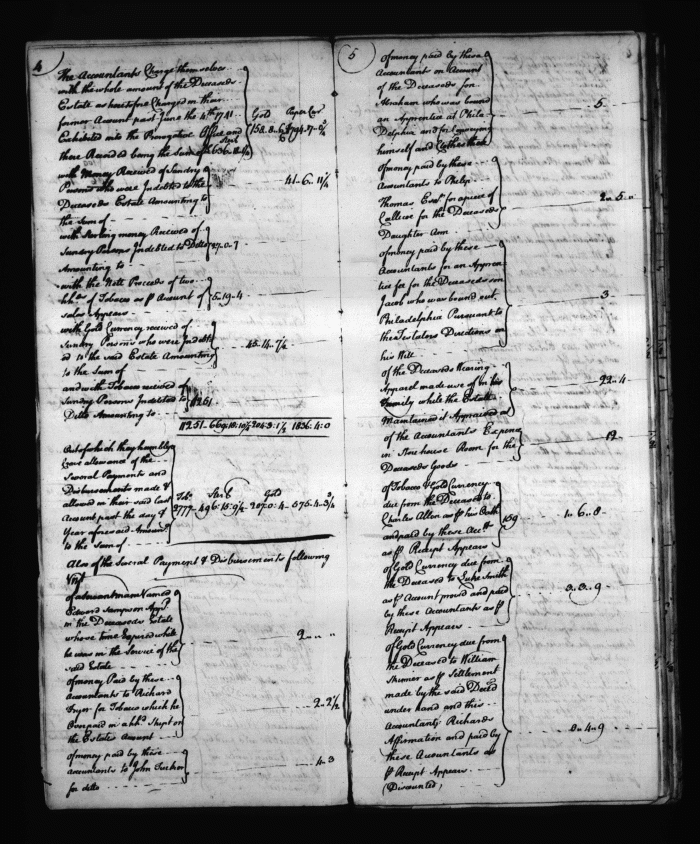 4
The Accountants Charge themselves
with the whole amount of the Deceaseds
Estate as heretofore Charged in their
former Account past June the 4th 1741 Gold Paper Cur
Exhibited into the Prerogative Office and
there Recorded being the Sum of
with Money Received of Sundry
Persons who were Indebted to the 41-6-11¼
Deceaseds Estate Amounting to
the Sum of
with Sterling money Received of
Sundry Persons Indebted to Ditto 27-0-7
Amounting to
with the Nett Proceeds of two
hhds of Tobacco as ⅌ Account of 5-19-4
sales Appears
with Gold Currency received of
Sundry Persons who were Indebted 45-14-7¼
ed to the said Estate Amounting
to the Sum of
and with Tobacco received of
Sundry Persons Indebted to 11251
Ditto Amounting to
11251-669:18:10½ 204:3:1½ 1836:4:0
Out of which they humbly
Crave allowance of the
Several Payments and
Disbursements made &
allowed in their said last Tobo Ster Gold
Account past the day & 2777-496:15:9¼-207:0:4-575-4-3¾
Year aforesaid Amount
to the Sum of
Also of the Several Payment & Disbursements following
Vizt
of a Servant man Named
Edward Sampson Appd
in the Deceaseds Estate
whose time Expired while 2 " "
he was in the Service of the
said Estate
of money Paid by these
Accountants to Richard
Tryer for Tobacco which he 2-2½
Overpaid in a hhd Shipt on
the Estates Account
of money paid by these
Accountants to John Tucker 4.3
for ditto
5
of money paid by these
Accountants on Account
of the Deceaseds son
Abraham who was bound 5
an Apprentice at Phila
Delphia and for Conveying
himself and Clothes there
of money paid by these
Accountants to Philip
Thomas Esqr for a piece of 2-5-"
Callico for the Deceaseds
Daughter Ann
of money paid by these
Accountants for an Appren
tice fee for the Deceaseds son
Jacob who was bound out 3
Philadelphia Pursuant to
the Testators Directions in
his Will
of the Deceaseds Wearing
Apparel made use of in his 22-4
Family while the Estate
Maintained it Appraised at
of the Accountants Expence 12
in Storehouse Room for the
Deceaseds Goods
of Tobacco & Gold Currency
due from the Deceased to
Charles Allen as ⅌ his Oath 159 1-6-8
and paid by these Acctts
as ⅌ Receipt Appears
of Gold Currency due from
the Deceased to Luke Smith
as ⅌ Account proved and paid 3-9
by these Accountants as ⅌
Receipt Appears
of Gold Currency due from
the Deceased to William
Skinner as ⅌ Settlement
made by the said Deced
under hand and this 0-4-9
Accountants Richards
Affirmation and paid by
these Accountants as
⅌ Receipt Appears
(Discounted)